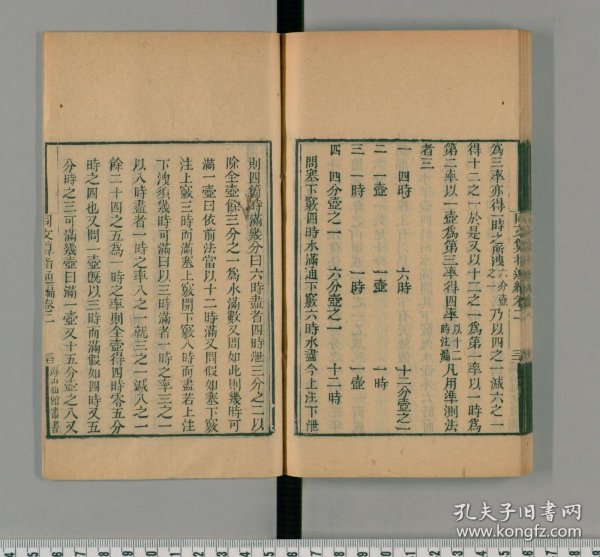 為三率亦得一時之所洩六分壺之一乃以四之一減六之一
得十二之一於是又以十二之一為第一率以一時為
第二率以一壺為第三率得四率以十二時注滿凡用準測法
者三
一 四時 六時 十二分壺之一
二 一壺 一壺 一時
三 一時 一時 一壺
四 四分壺之一 六分壺之一 十二時
問塞下竅四時水滿通下竅六時水盡今上注下泄
則四箇時滿幾分曰六時盡者四時泄三分之二以
除全壺餘三分之一為水滿數又問如此則幾時可
滿一壺曰依前法當以十二時滿又問假如塞下竅
注上竅三時而滿塞上竅開下竅八時而盡若上注
下洩須幾時可滿曰以三時滿者一時之率三之一
以八時盡者一時之率八之一就三之一減八之一
餘二十四之五為一時之率則全壺得四時零五分
時之四也又問一壺既以三時而滿假如四時又五
分時之三可滿幾壺曰滿一壺又十五分壺之八又
同文算指通編卷二
海山仙館叢書
孔夫子旧书网
www.kongfz.com